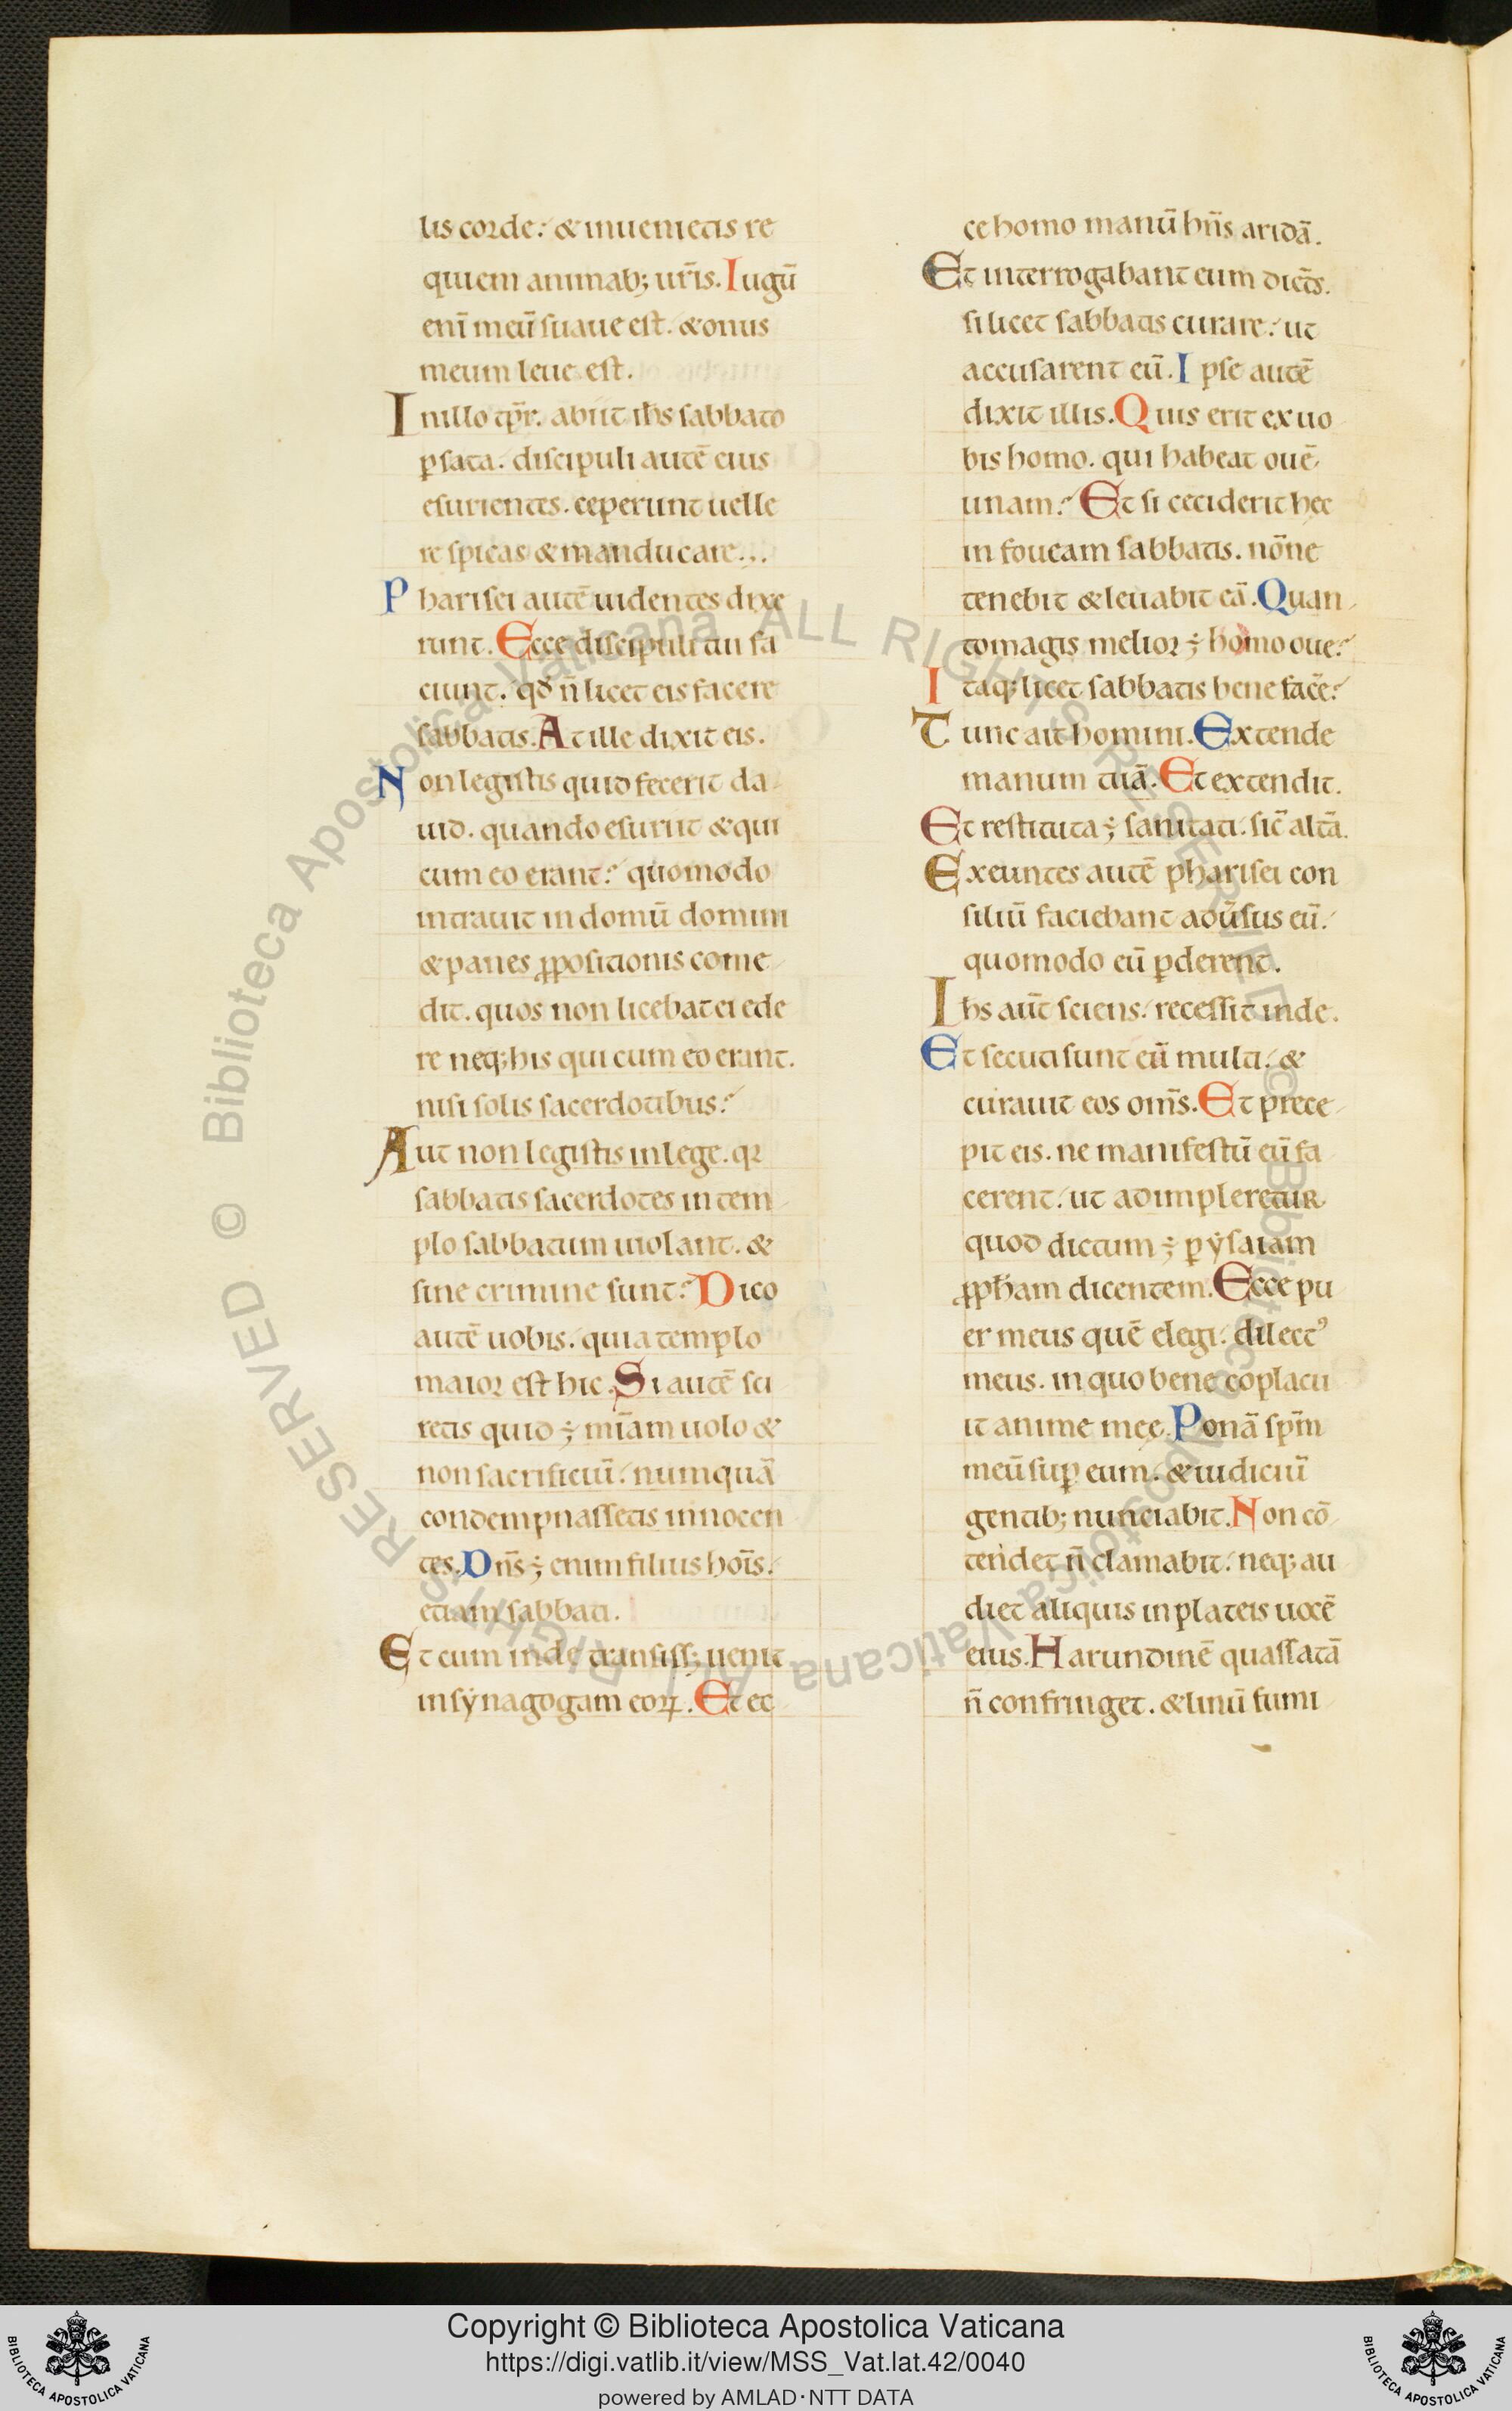 lis corde. & inuenietis re
quiem animab; ur̄is. Iugū
enī meū suaue est. & onus
meum leue est.
In illo tp̄r. abiit ih̄s sabbato
ꝑ sata. discipuli autē eius
esurientes. ceperunt uelle
re spicas & manducare...
Pharisei autē uidentes dixe
runt. Ecce discipuli tui fa
ciunt. qd̄ n̄ licet eis facere
sabbatis. At ille dixit eis.
Non legistis quid fecerit da
uid. quando esuriit & qui
cum eo erant? quomodo
intrauit in domū domini
& panes ꝓpositionis come
dit. quos non licebat ei ede
re neq; his qui cum eo erant.
nisi solis sacerdotibus?
Aut non legistis in lege. qꝛ
sabbatis sacerdotes in tem
plo sabbatum uiolant. &
sine crimine sunt? Dico
autē uobis. quia templo
maior est hic. Si autē sci
retis quid ÷ mīam uolo &
non sacrificiū. numquā
condempnassetis innocen
tes. Dn̄s ÷ enim filius hoīs.
etiam sabbati.
Et cum inde transiss; uenit
in synagogam eoꝝ. Et ec
ce homo manū hn̄s aridā.
Et interrogabant eum dicēs.
si licet sabbatis curare? ut
accusarent eū. Ipse autē
dixit illis. Quis erit ex uo
bis homo. qui habeat ouē
unam? Et si ceciderit hec
in foueam sabbatis. nōne
tenebit & leuabit eā. Quan
to magis melior ÷ homo oue?
Itaq; licet sabbatis bene facē?
Tunc ait homini. Extende
manum tuā. Et extendit.
Et restituta ÷ sanitati. sic̄ altā.
Exeuntes autē pharisei con
siliū faciebant adūsus eū.
quomodo eū ꝑderent.
Ihs aut̄ sciens. recessit inde.
Et secuti sunt eū multi. &
curauit eos om̄s. Et prece
pit eis. ne manifestū eū fa
cerent. ut adimpleretur
quod dictum ÷ ꝑ ysaiam
ꝓph̄am dicentem. Ecce pu
er meus quē elegi. dilectꝰ
meus. in quo bene coplacu
it anime meę. Ponā sp̄m
meū suꝑ eum. & iudiciū
gentib; nunciabit. Non cō
tendet n̄ clamabit. neq; au
diet aliquis in plateis uocē
eius. Harundinē quassatā
n̄ confringet. & linū fumi
© Biblioteca Apostolica Vaticana ALL RIGHTS RESERVED © Biblioteca Apostolica Vaticana ALL RIGHTS RESERVED
Copyright © Biblioteca Apostolica Vaticana
https://digi.vatlib.it/view/MSS_Vat.lat.42/0040
powered by AMLAD·NTT DATA
BIBLIOTECA APOSTOLICA VATICANA
BIBLIOTECA APOSTOLICA VATICANA